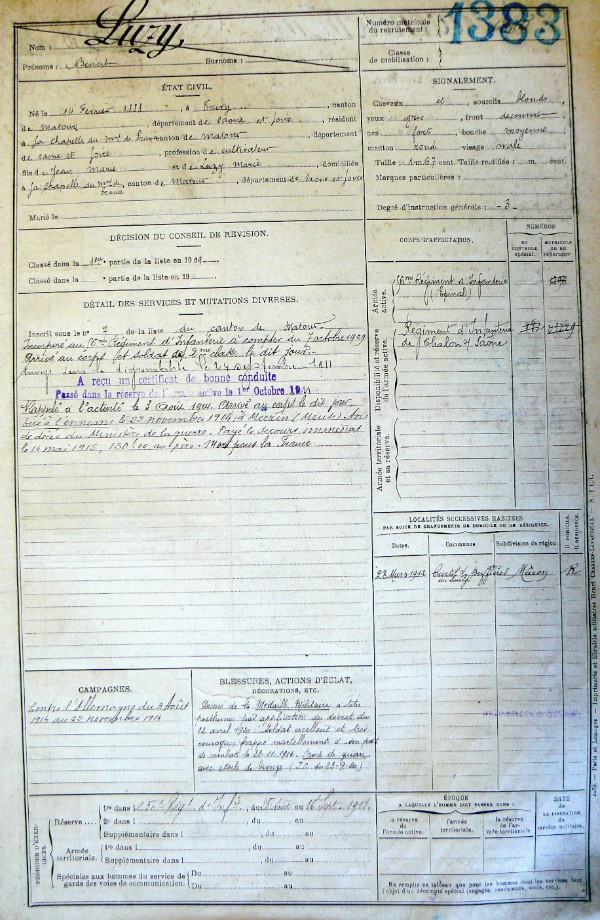 Luzy,
1383
Nom :
Numéro matricule
du recrutement :
Classe
de mobilisation :
Prénoms : Benoit Surnoms :
ÉTAT CIVIL.
Né le 14 Février 1888, à Trivy, canton
de Matour, département de Saône et Loire, résident
à La Chapelle du Mt de France, canton de Matour, département
de Saône et Loire, profession de cultivateur
fils de Jean Marie et de Luzy Marie, domiciliés
à La Chapelle du Mt de France, canton de Matour, département de Saône et Loire
Marié le
SIGNALEMENT.
Cheveux et sourcils blonds
yeux gris, front découvert
nez fort, bouche moyenne
menton rond visage ovale
Taille : 1 m. 67 cent. Taille rectifiée : m. cent.
Marques particulières :
Degré d'instruction générale : 3
DÉCISION DU CONSEIL DE RÉVISION.
Classé dans la 1ère partie de la liste en 1909
Classé dans la partie de la liste en 19
DÉTAIL DES SERVICES ET MUTATIONS DIVERSES.
Inscrit sous le n° 7 de la liste du canton de Matour
Incorporé au Régiment d'Infanterie à compter du 7 octobre 1909
Arrivé au corps et soldat de 2me classe le dit jour.
Envoyé dans la disponibilité le 24 septembre 1911
A reçu un certificat de bonne conduite
Passé dans la réserve de l'armée active le 1er Octobre 1911
Rappelé à l'activité le 3 Août 1914. Arrivé au corps le dit jour
Tué à l'ennemi le 22 novembre 1914 à Mécrin (Meuse). Avis
de décès du Ministère de la guerre. Payé le secours immédiat
le 14 mai 1915, 150.00 au père. Mort pour la France.
CORPS D'AFFECTATION.
NUMÉROS
AU CONTRÔLE spécial.
MATRICULE OU AU répertoire.
Armée active.
Régiment d'Infanterie
(Epinal)
Disponibilité et réserve de l'armée active.
Régiment d'Infanterie
de Chalon s/ Saône
Armée territoriale et sa réserve.
LOCALITÉS SUCCESSIVES HABITÉES
PAR SUITE DE CHANGEMENTS DE DOMICILE OU DE RÉSIDENCE.
Dates. Communes Subdivision de région. D. DOMICILE. R. RÉSIDENCE.
28 Mars 1912 Curtil s/s Buffières Mâcon R
au bourg
CAMPAGNES.
Contre l'Allemagne du 3 Août
1914 au 22 Novembre 1914
BLESSURES, ACTIONS D'ÉCLAT,
DÉCORATIONS, ETC.
Décoré de la Médaille Militaire à titre
posthume par application du décret du
avril 1920. Soldat excellent et très
courageux frappé mortellement à son poste
de combat le 22-11-1914. Croix de guerre
avec étoile de bronze (J.O. du
PÉRIODES D'EXERCICES.
Réserve
1re dans le Régt d'Infie, du Août au 16 Sept. 1912
2e dans l , du au
Supplémentaire dans l , du au
Armée territoriale.
dans l , du au
Supplémentaire dans l , du au
Spéciales aux hommes du service de
garde des voies de communication.
Du au
Du au
ÉPOQUE
A LAQUELLE L'HOMME DOIT PASSER DANS :
la réserve de l'armée active.
l'armée territoriale.
la réserve de l'armée territoriale.
DATE
DE LA LIBÉRATION du service militaire.
Ne remplir ce tableau que pour les hommes dont les services font
l'objet d'un décompte spécial (engagés, condamnés, omis, etc.).
Paris et Limoges. — Imprimerie et librairie militaires Henri CHARLES-LAVAUZELLE.